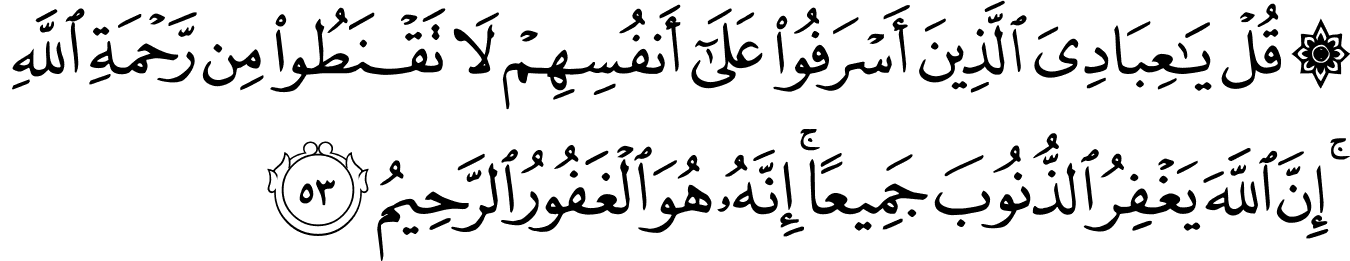 ۞ قُلْ يَـٰعِبَادِىَ ٱلَّذِينَ أَسْرَفُوا۟ عَلَىٰٓ أَنفُسِهِمْ لَا تَقْنَطُوا۟ مِن رَّحْمَةِ ٱللَّهِ
ۚ إِنَّ ٱللَّهَ يَغْفِرُ ٱلذُّنُوبَ جَمِيعًا ۚ إِنَّهُۥ هُوَ ٱلْغَفُورُ ٱلرَّحِيمُ ٥٣